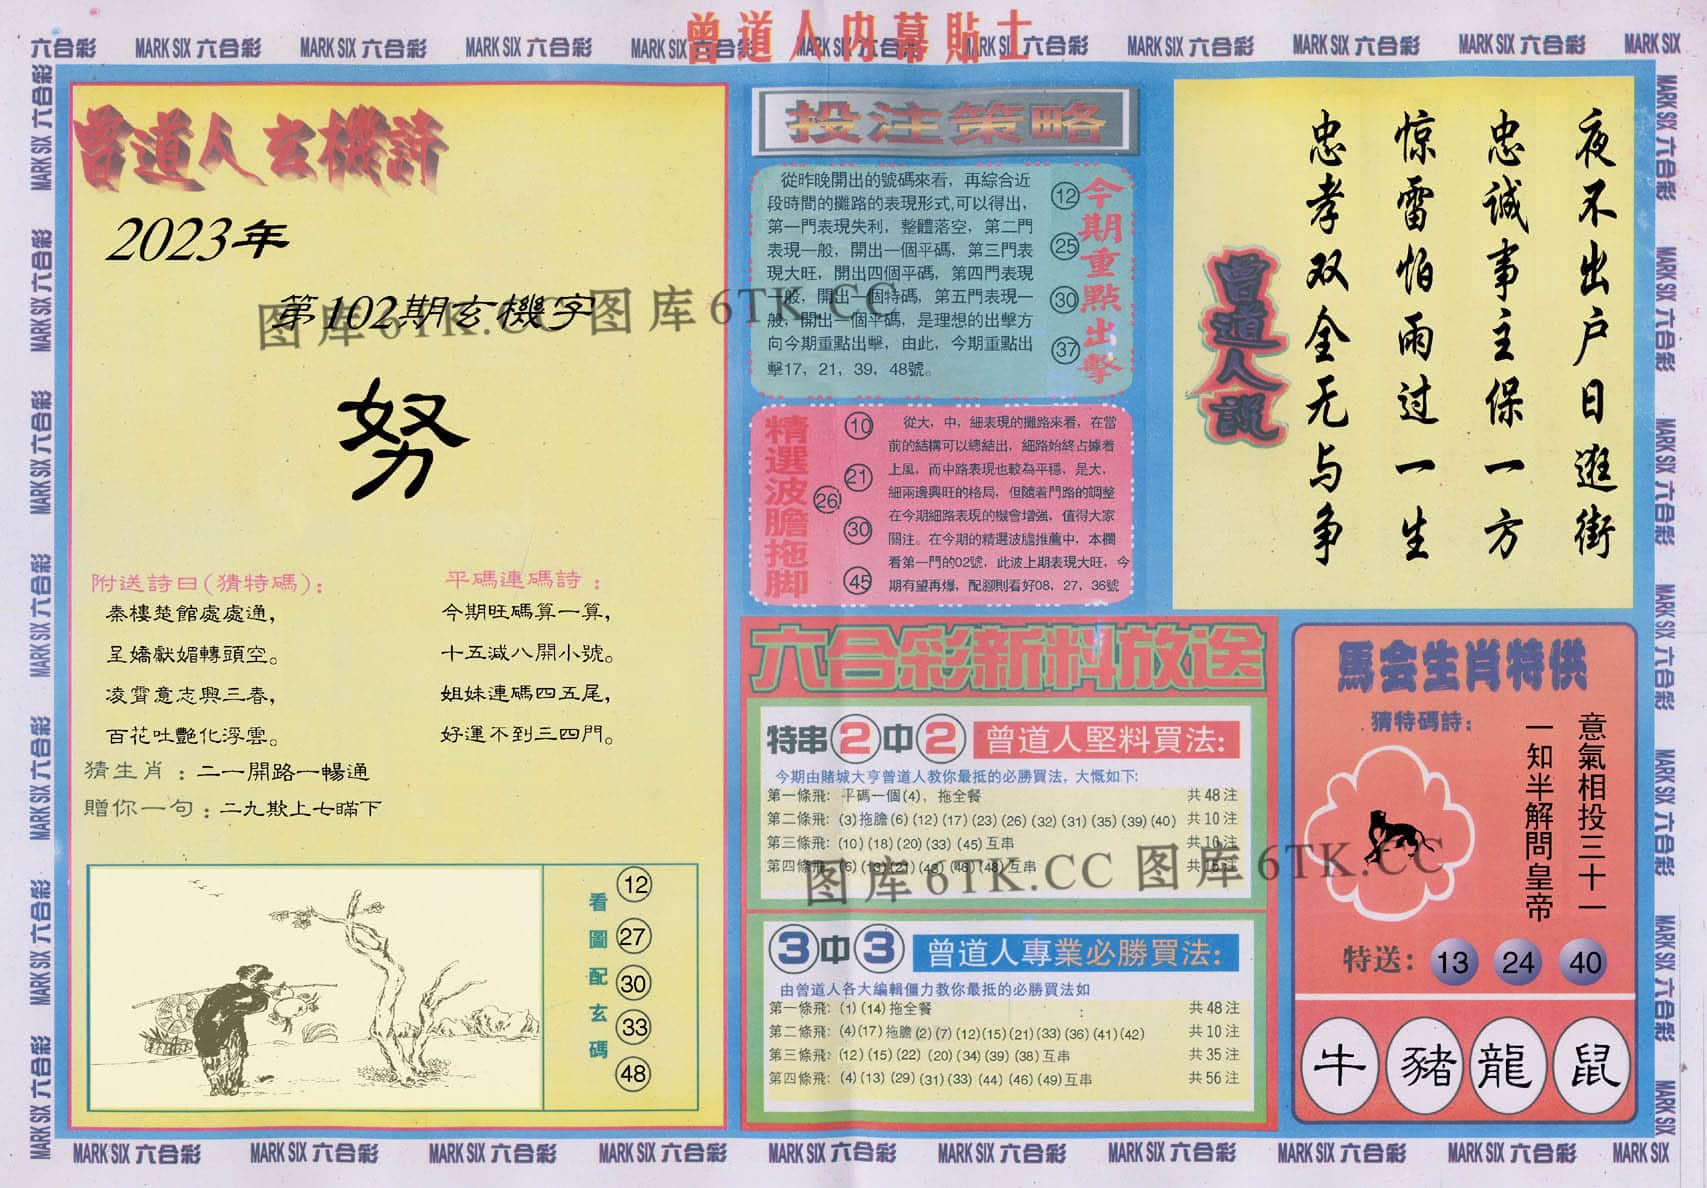 曾道人内幕貼士
六合彩 MARK SIX 六合彩 MARK SIX 六合彩 MARK SIX 六合彩 MARK SIX 六合彩 MARK SIX 六合彩 MARK SIX 六合彩 MARK SIX 六合彩 MARK SIX 六合彩 MARK SIX 六合彩 MARK SIX
曾道人玄機詩
2023年
第102期玄機字
努
附送詩曰(猜特碼):
秦樓楚館處處通,
呈嬌獻媚轉頭空。
凌霄意志興三春,
百花吐艷化浮雲。
平碼連碼詩:
今期旺碼算一算,
十五減八開小號。
姐妹連碼四五尾,
好運不到三四門。
猜生肖:二一開路一暢通
贈你一句:二九欺上七瞞下
看圖配玄碼
12
27
30
33
48
投注策略
從昨晚開出的號碼來看，再綜合近
段時間的攤路的表現形式,可以得出,
第一門表現失利，整體落空，第二門
表現一般，開出一個平碼，第三門表
現大旺，開出四個平碼，第四門表現
一般，開出一個特碼，第五門表現一
般，開出一個平碼，是理想的出擊方
向今期重點出擊，由此，今期重點出
擊17，21，39，48號。
今期重點出擊
12
25
30
37
精選波膽拖脚
10
21
26
30
45
從大，中，細表現的攤路來看，在當
前的結構可以總結出，細路始終占據着
上風，而中路表現也較為平穩，是大，
細兩邊興旺的格局，但隨着門路的調整
在今期細路表現的機會增強，值得大家
關注。在今期的精選波膽推薦中，本欄
看第一門的02號，此波上期表現大旺，今
期有望再爆，配腳則看好08，27，36號
夜不出户日逛街
忠诚事主保一方
惊雷怕雨过一生
忠孝双全无与争
曾道人説
六合彩新料放送
特串2中2 曾道人堅料買法:
今期由賭城大亨曾道人教你最抵的必勝買法，大慨如下:
第一條飛: 平碼一個(4)，拖全餐 共48注
第二條飛: (3)拖膽(6)(12)(17)(23)(26)(32)(31)(35)(39)(40) 共10注
第三條飛: (10)(18)(20)(33)(45)互串 共10注
第四條飛: (6)(13)(21)(43)(46)(48)互串 共15注
3中3 曾道人專業必勝買法:
由曾道人各大編輯僵力教你最抵的必勝買法如
第一條飛: (1)(14)拖全餐 共48注
第二條飛: (4)(17)拖膽(2)(7)(12)(15)(21)(33)(36)(41)(42) 共10注
第三條飛: (12)(15)(22)(20)(34)(39)(38)互串 共35注
第四條飛: (4)(13)(29)(31)(33)(44)(46)(49)互串 共56注
馬会生肖特供
猜特碼詩:
意氣相投三十一
一知半解問皇帝
特送: 13 24 40
牛 豬 龍 鼠
图库6TK.CC 图库6TK.CC
图库6TK.CC 图库6TK.CC
MARK SIX 六合彩 MARK SIX 六合彩 MARK SIX 六合彩 MARK SIX 六合彩 MARK SIX 六合彩 MARK SIX 六合彩 MARK SIX 六合彩
MARK SIX 六合彩 MARK SIX 六合彩 MARK SIX 六合彩 MARK SIX 六合彩 MARK SIX 六合彩 MARK SIX 六合彩 MARK SIX
MARK SIX 六合彩 MARK SIX 六合彩 MARK SIX 六合彩 MARK SIX 六合彩 MARK SIX 六合彩 MARK SIX 六合彩 MARK SIX 六合彩 MARK SIX 六合彩 MARK SIX 六合彩 MARK SIX